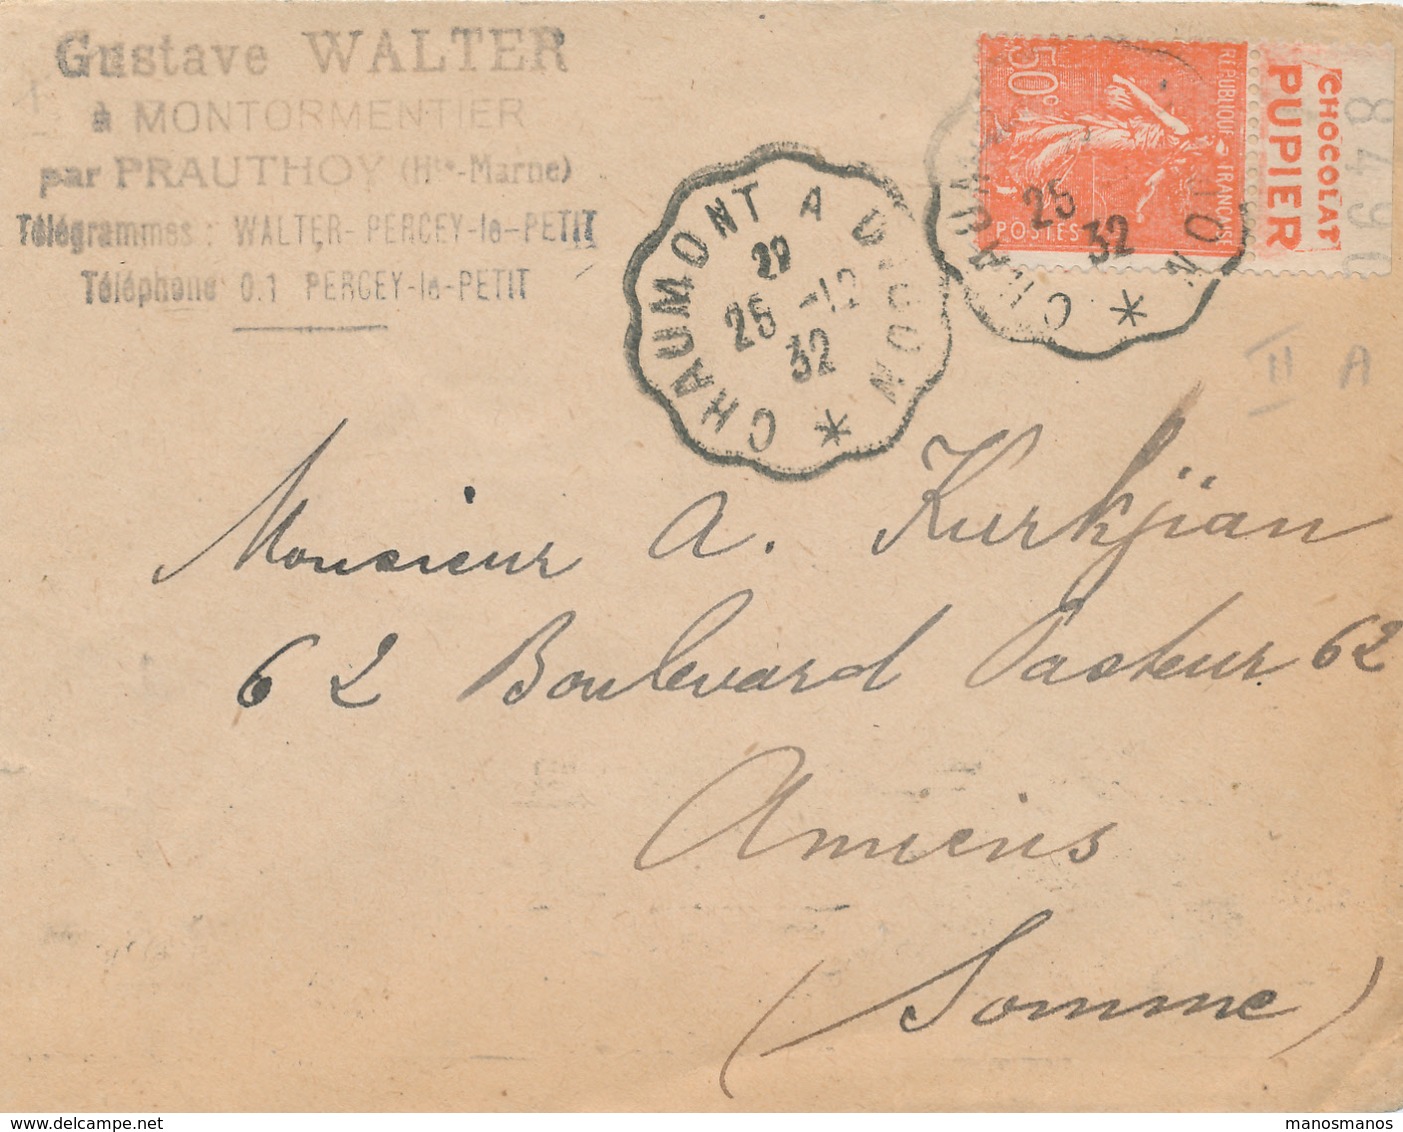 Gustave WALTER
à MONTORMENTIER
par PRAUTHOY (Hte-Marne)
Télégrammes : WALTER-PERCEY-le-PETIT
Téléphone 0.1 PERCEY-le-PETIT
CHAUMONT A DIJON *
22
25 -12
32
50c
RÉPUBLIQUE FRANÇAISE
POSTES
CHOCOLAT
PUPIER
CHAUM
JON *
25
32
II A
Monsieur A. Kurkjian
62 Boulevard Pasteur 62
Amiens
(Somme)
manosmanos